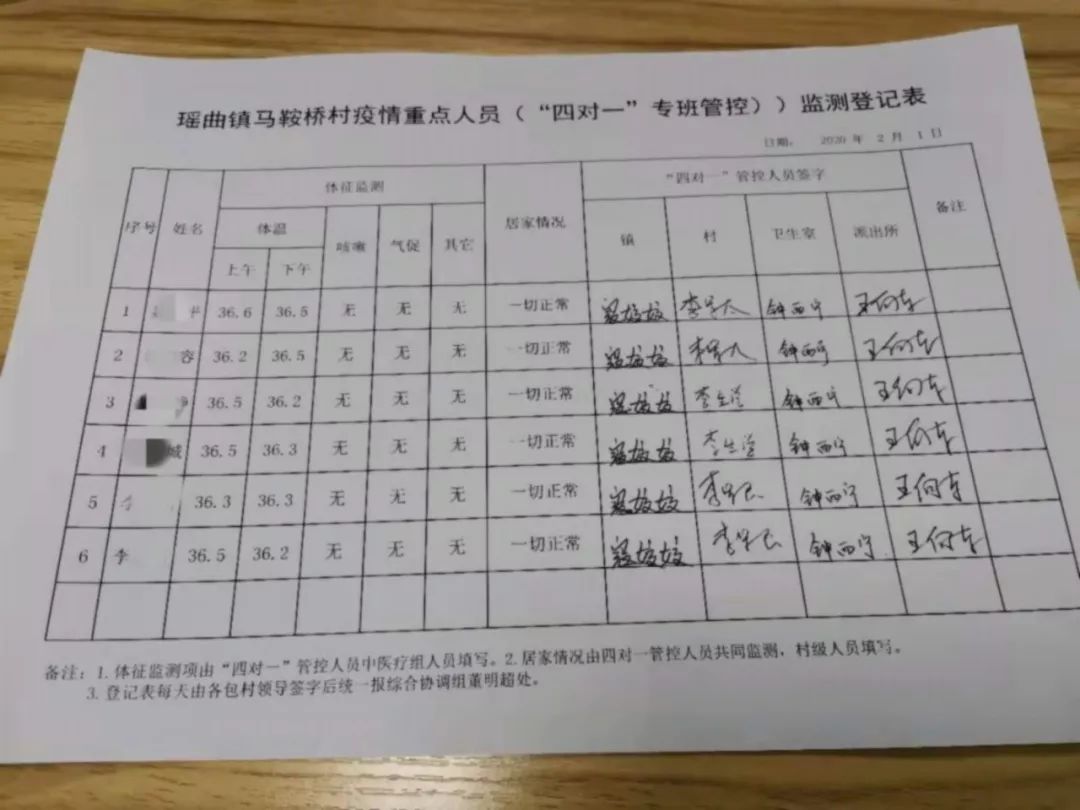 瑶曲镇马鞍桥村疫情重点人员（“四对一”专班管控））监测登记表
日期： 2020 年 2 月 1 日
序号 姓名 体征监测 居家情况 “四对一”管控人员签字 备注
体温 咳嗽 气促 其它 镇 村 卫生室 派出所
上午 下午
1 36.6 36.5 无 无 无 一切正常 钟西宁 王向东
2 容 36.2 36.5 无 无 无 一切正常 钟西宁 王向东
3 36.5 36.2 无 无 无 一切正常 李生学 钟西宁 王向东
4 城 36.5 36.3 无 无 无 一切正常 李生学 钟西宁 王向东
5 李 36.3 36.3 无 无 无 一切正常 钟西宁 王向东
6 李 36.5 36.2 无 无 无 一切正常 钟西宁 王向东
备注：1. 体征监测项由“四对一”管控人员中医疗组人员填写。2. 居家情况由四对一管控人员共同监测，村级人员填写。
3. 登记表每天由各包村领导签字后统一报综合协调组董明超处。